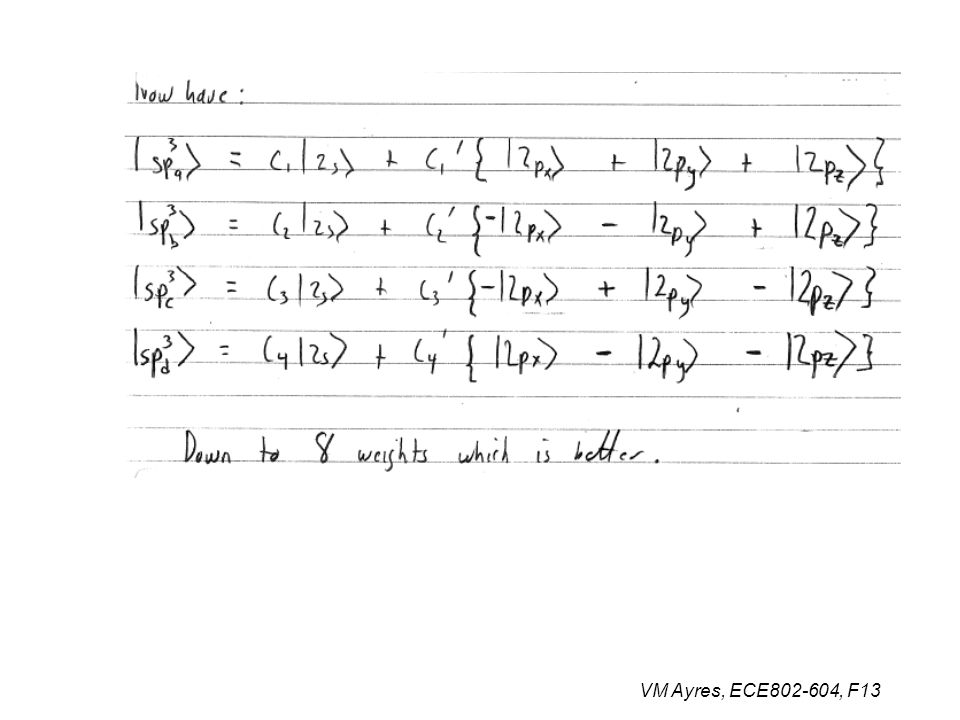 Now have:
|sp³ₐ⟩ = C₁|2s⟩ + C₁'{ |2pₓ⟩ + |2p_y⟩ + |2p_z⟩}
|sp³_b⟩ = C₂|2s⟩ + C₂'{-|2pₓ⟩ - |2p_y⟩ + |2p_z⟩}
|sp³_c⟩ = C₃|2s⟩ + C₃'{-|2pₓ⟩ + |2p_y⟩ - |2p_z⟩}
|sp³_d⟩ = C₄|2s⟩ + C₄'{ |2pₓ⟩ - |2p_y⟩ - |2p_z⟩}
Down to 8 weights which is better.
VM Ayres, ECE802-604, F13